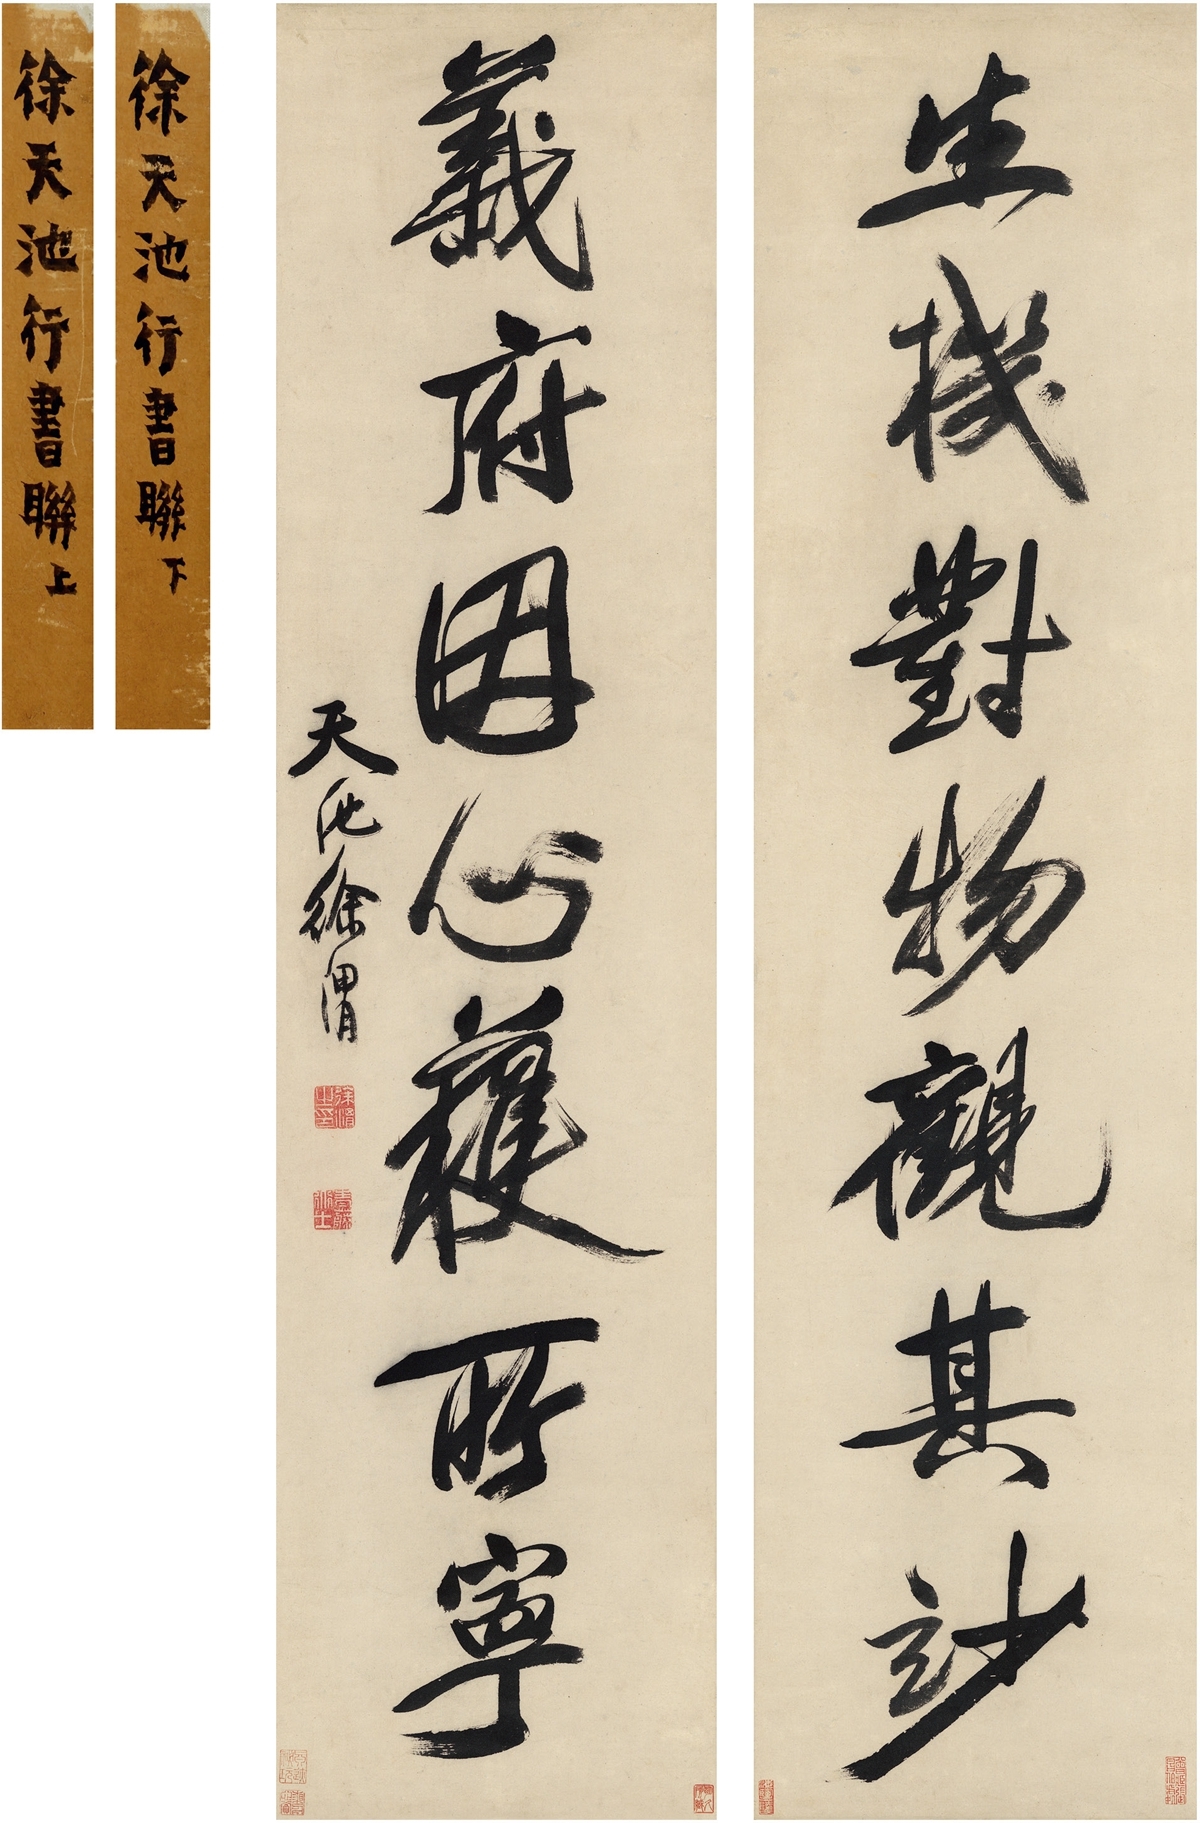 生機對物觀其妙
義府因心獲所寧
天池徐渭
徐渭之印
徐天池行書聯下
徐天池行書聯上